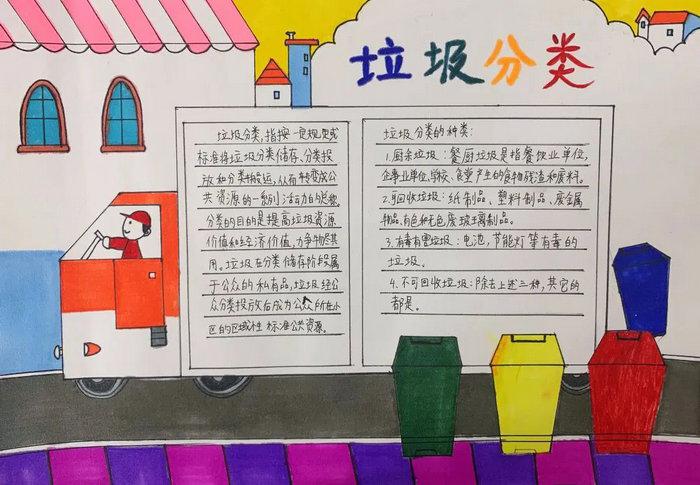 垃圾分类
垃圾分类,指按一定规定或
标准将垃圾分类储存、分类投
放和分类搬运,从而转变成公
共资源的一系列活动的总称。
分类的目的是提高垃圾资源
价值和经济价值,力争物尽其
用。垃圾在分类储存阶段属
于公众的私有品,垃圾经公
众分类投放后成为公众所在小
区的区域性标准公共资源。
垃圾分类的种类:
1.厨余垃圾:餐厨垃圾是指餐饮业单位,
企事业单位、学校、食堂产生的食物残渣和废料。
2.可回收垃圾:纸制品、塑料制品、废金属
制品、有色和无色废玻璃制品。
3.有毒有害垃圾:电池,节能灯等有毒的
垃圾。
4.不可回收垃圾:除去上述三种,其它的
都是。